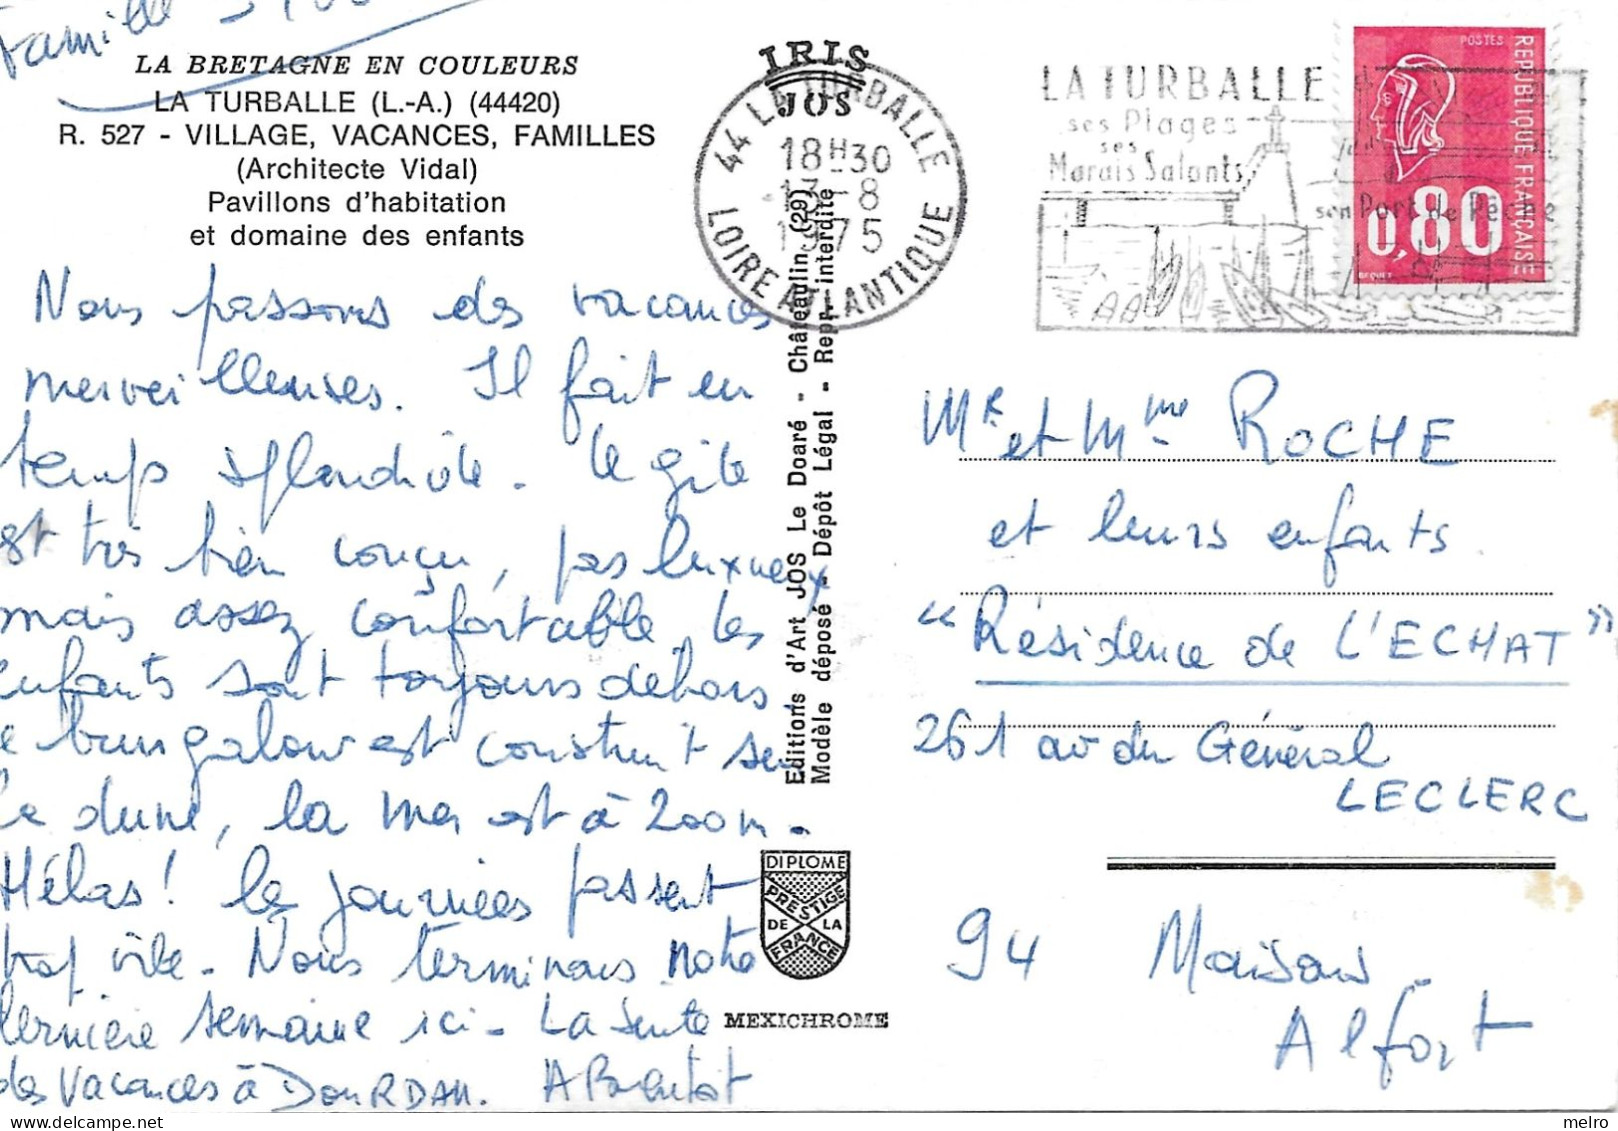 Famille
LA BRETAGNE EN COULEURS
LA TURBALLE (L.-A.) (44420)
R. 527 - VILLAGE, VACANCES, FAMILLES
(Architecte Vidal)
Pavillons d'habitation
et domaine des enfants
Nous passons des vacances
merveilleuses. Il fait un
temps splendide. le gîte
est très bien conçu, pas luxueux
mais assez confortable, les
enfants sont toujours dehors,
le bungalow est construit sur
la dune, la mer est à 200m.
Hélas! les journées passent
trop vite. Nous terminons notre
dernière semaine ici. La suite
des vacances à DOURDAN. A Bientôt
IRIS
JOS
Editions d'Art JOS Le Doaré - Châteaulin (29)
Modèle déposé - Dépôt Légal - Repr. interdite
DIPLOME
PRESTIGE
DE LA
FRANCE
MEXICHROME
44 LA TURBALLE
18H30
13-8
1975
LOIRE ATLANTIQUE
LA TURBALLE
ses Plages
ses
Marais Salants
son Port de Pêche
POSTES
REPUBLIQUE FRANÇAISE
0,80
BEQUET
Mr et Mme ROCHE
et leurs enfants.
"Résidence de L'ECHAT"
261 av du Général
LECLERC
94 Maisons
Alfort
melro